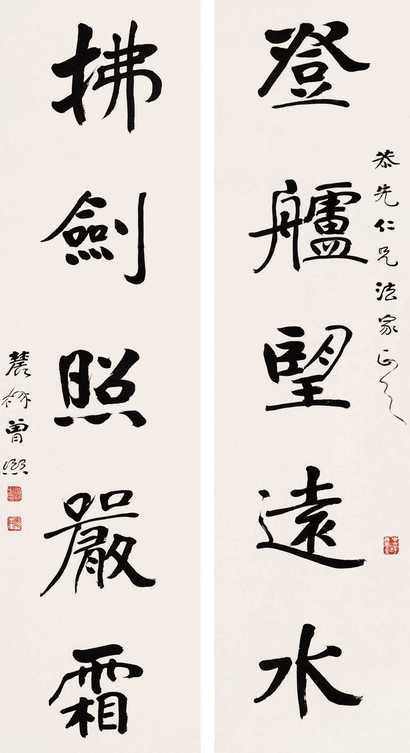 恭先仁兄法家正之
登艫望遠水
拂劍照嚴霜
農髯曾熙